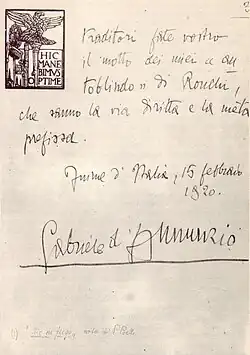 HIC
MANE
BIMVS
OPTIME
traditori fate vostro
il motto dei miei « au
toblindo » di Ronchi,
che sanno la via diritta e la meta
prefissa.
Fiume d'Italia, 15 febbraio
1920.
Gabriele d'Annunzio